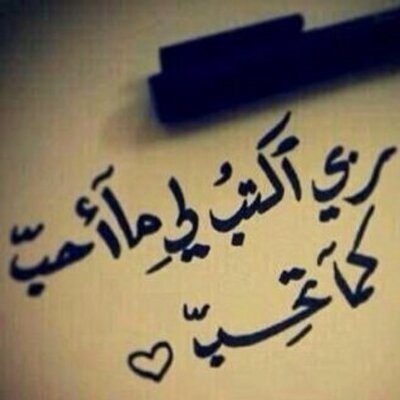 ربي آكتبُ لي مِاآأحبّ
كمآ تحِبّ ♡